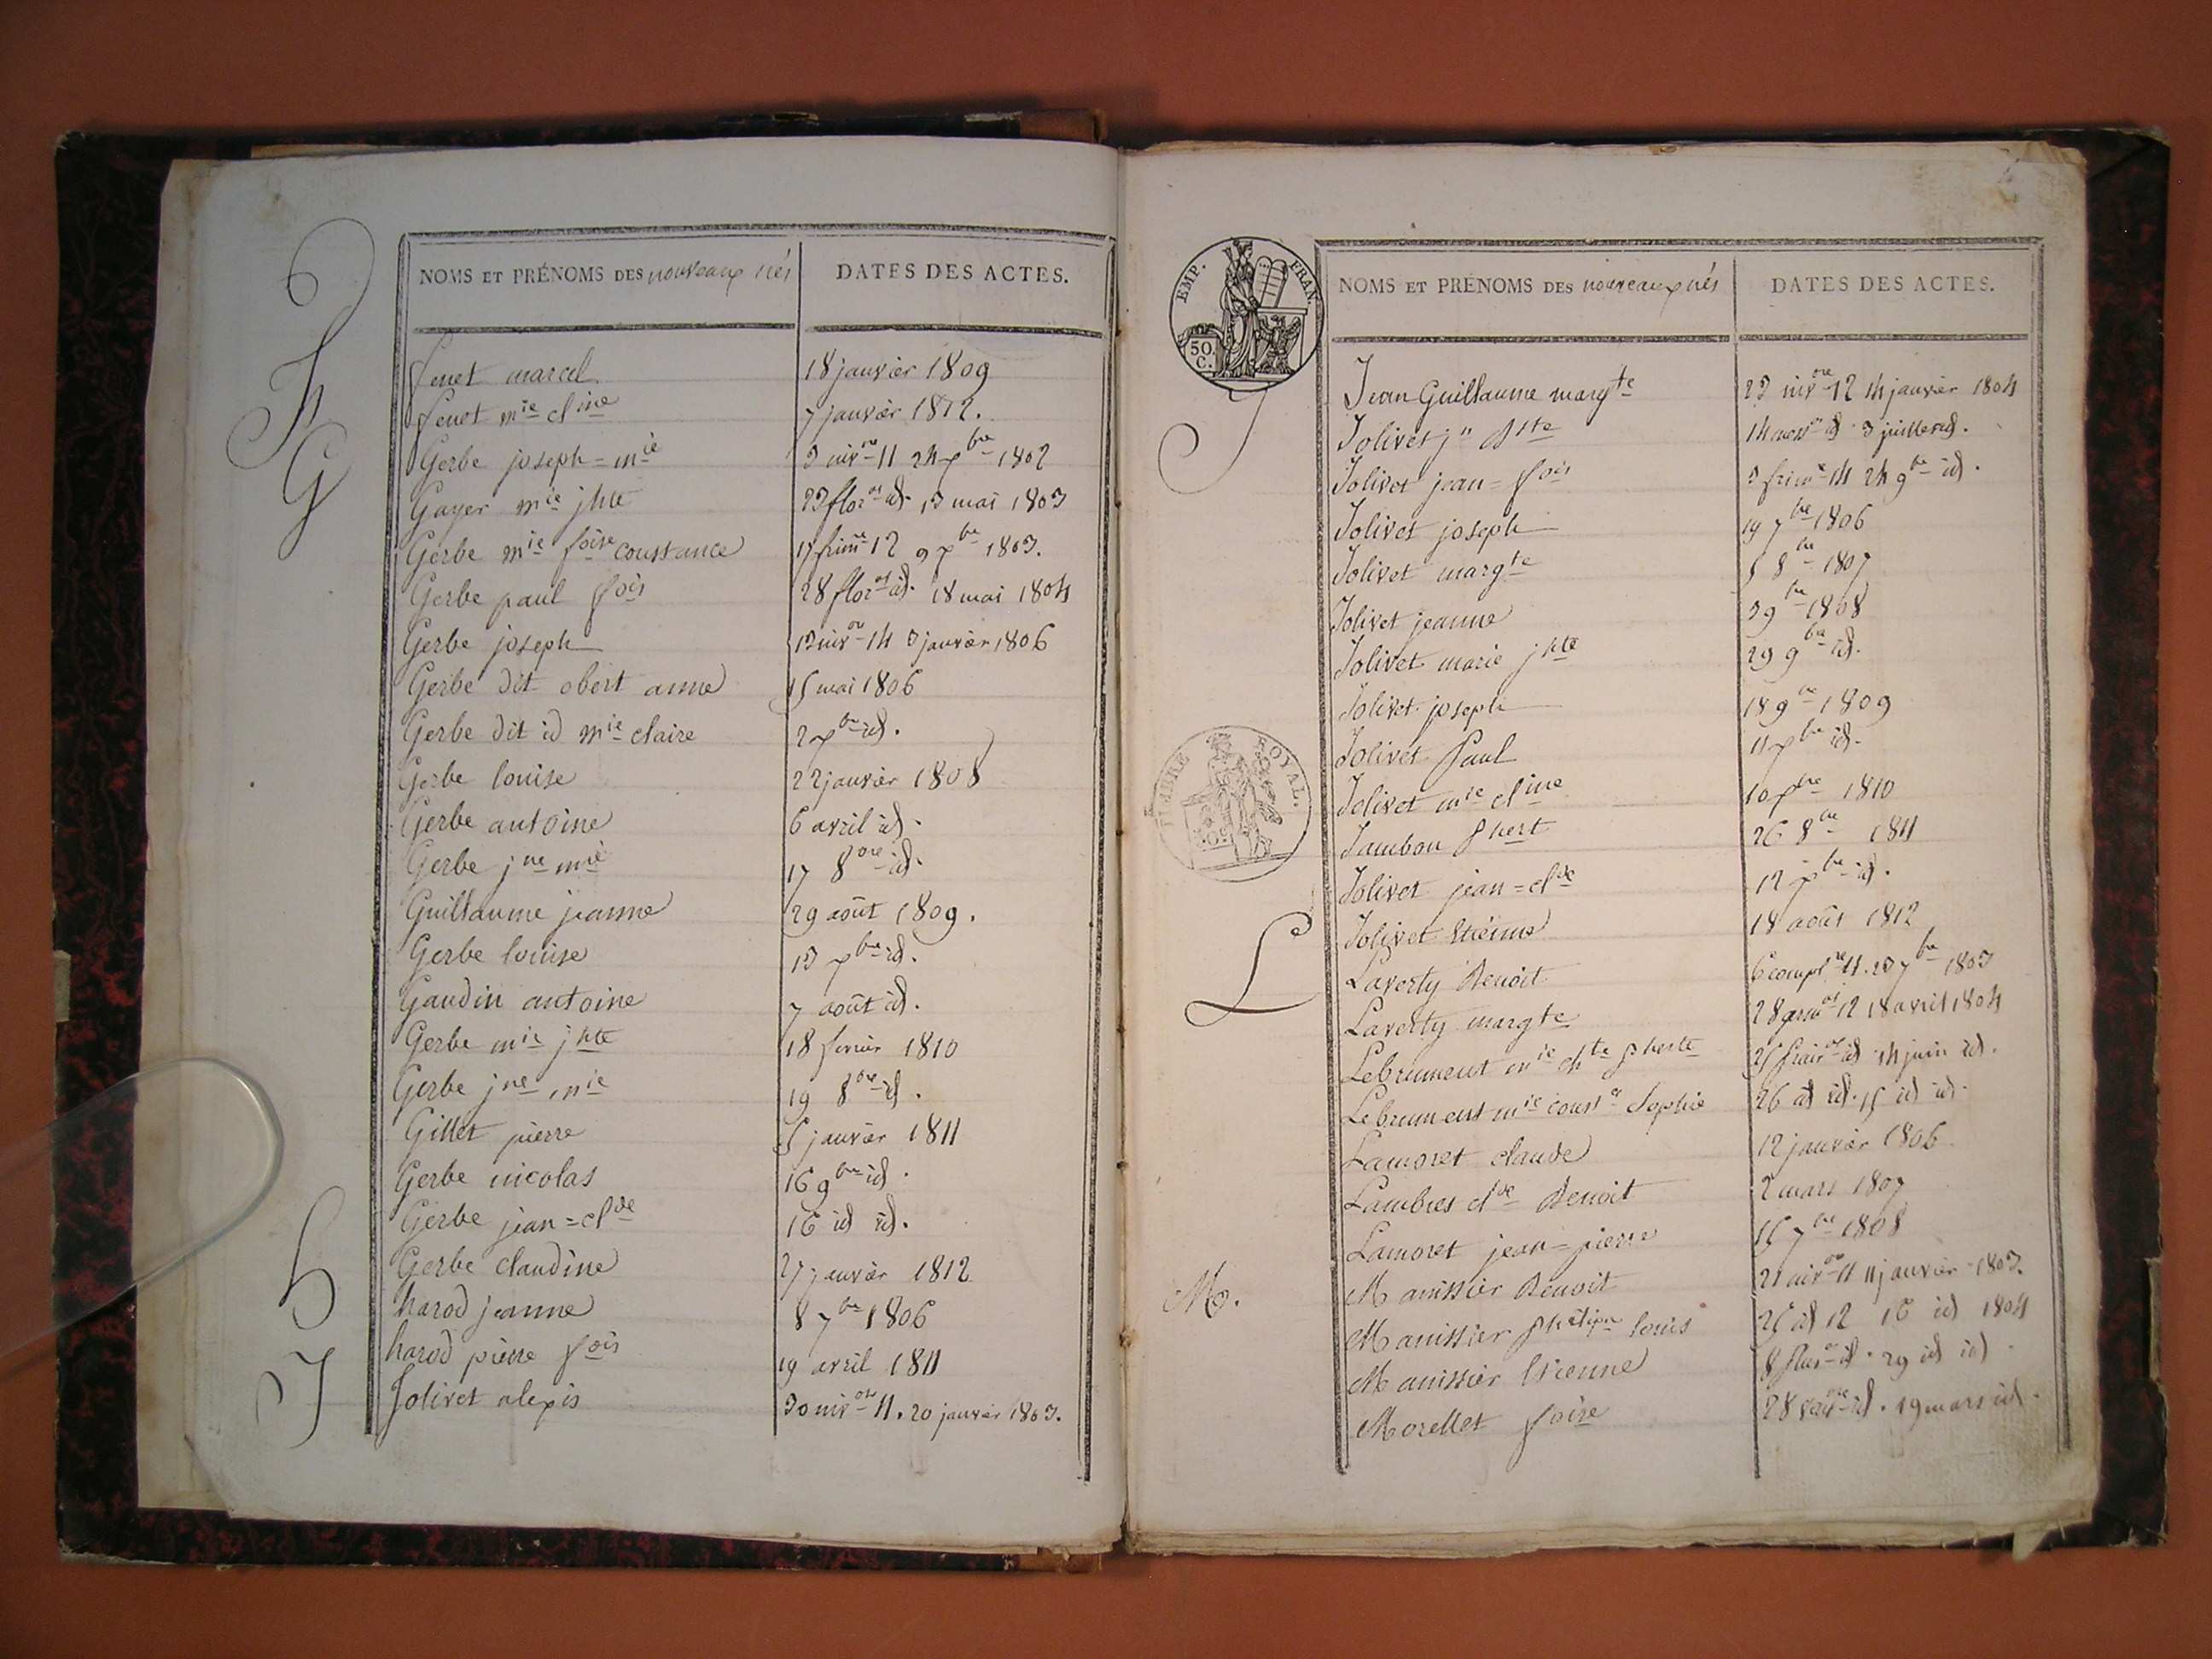 NOMS ET PRÉNOMS DES nouveaux nés DATES DES ACTES.
F
fenet marcel 18 janvier 1809
fenet mie cline 7 janvier 1812.
G
Gerbe joseph = mie 3 nivre 11 24 xbre 1802
Gayer mie jhte 23 floral id. 13 mai 1803
Gerbe mie foise constance 17 frimre 12 9 xbre 1803.
Gerbe paul fois 28 floral id. 18 mai 1804
Gerbe joseph 13 nivre 14 3 janvier 1806
Gerbe dit obert anne 15 mai 1806
Gerbe dit id mie claire 2 xbre id.
Gerbe louise 22 janvier 1808
Gerbe antoine 6 avril id.
Gerbe jne mie 17 8bre id.
Guillaume jeanne 29 août 1809.
Gerbe louise 13 xbre id.
Gaudin antoine 7 août id.
Gerbe mie jhte 18 fevrier 1810
Gerbe jne mie 19 8bre id.
Gillet pierre 5 janvier 1811
Gerbe nicolas 16 9bre id.
Gerbe jean = clde 16 id id.
Gerbe claudine 27 janvier 1812
h
harod jeanne 8 7bre 1806
harod pierre fois 19 avril 1811
J
Jolivet alexis 30 nivre 11. 20 janvier 1803.
EMP. FRAN.
50. C.
NOMS ET PRÉNOMS DES nouveaux nés DATES DES ACTES.
J
Jean Guillaume margte 23 nivre 12 14 janvier 1804
Jolivet jn Bte 14 messor id 3 juillet id.
Jolivet jean = fois 3 frimre 14 24 9bre id.
Jolivet joseph 19 7bre 1806
Jolivet margte 5 8bre 1807
Jolivet jeanne 3 9bre 1808
Jolivet marie jhte 29 9bre id.
Jolivet joseph 18 9bre 1809
TIMBRE ROYAL.
Jolivet Paul 11 xbre id.
Jolivet mie cline 10 xbre 1810
Jambon phert 26 8bre 1811
Jolivet jean = clde 12 xbre id.
Jolivet Etienne 18 août 1812
L
Laverty Benoit 6 complre 11. 23 7bre 1803
Laverty margte 28 germal 12 18 avril 1804
Lebrument mie chte pherte 25 prairal id 14 juin id.
Lebrument mie constce Sophie 26 id id. 15 id id.
Lamoret claude 12 janvier 1806
Lambres clde Benoit 2 mars 1807
Lamoret jean = pierre 15 7bre 1808
M.
Manissier Benoit 21 nivre 11 11 janvier 1803.
Manissier louis 25 id 12 16 id 1804
Manissier Etienne 8 pluve id. 29 id id.
Morellet foise 28 ventse id. 19 mars id.